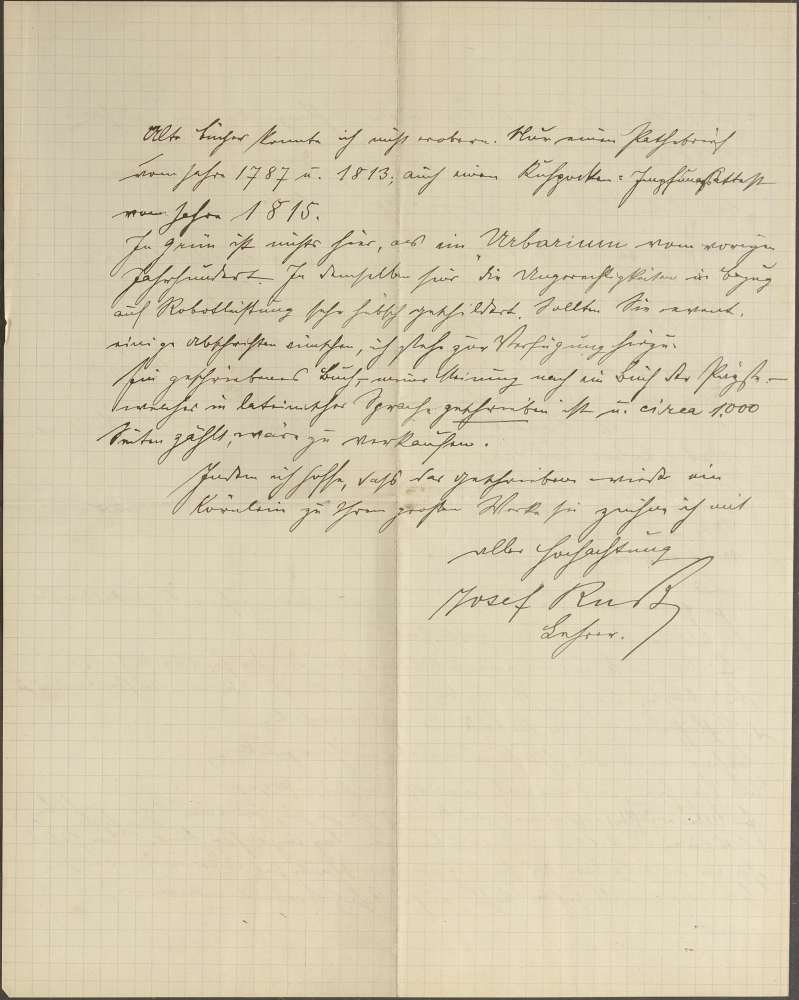 Alte Bücher konnte ich nicht erobern. Nur einen Pathebrief
vom Jahre 1787 u. 1813; auch einen Kuhpocken-Impfungsattest
vom Jahre 1815.
In Grün ist nichts hier, als ein Urbarium vom vorigen
Jahrhundert. In demselben sind die Ungerechtigkeiten in Bezug
auf Robotleistung sehr hübsch geschildert. Sollten Sie event.
einige Abschriften wünschen, ich stehe zur Verfügung hiezu.
Ein geschriebenes Buch, meiner Meinung nach ein Buch der Päpste
welches in lateinischer Sprache geschrieben ist u. circa 1.000
Seiten zählt, wäre zu verkaufen.
Indem ich hoffe, dass das Geschriebene wieder ein
Körnlein zu Ihrem großen Werke sei zeichne ich mit
aller Hochachtung
Josef
Lehrer.